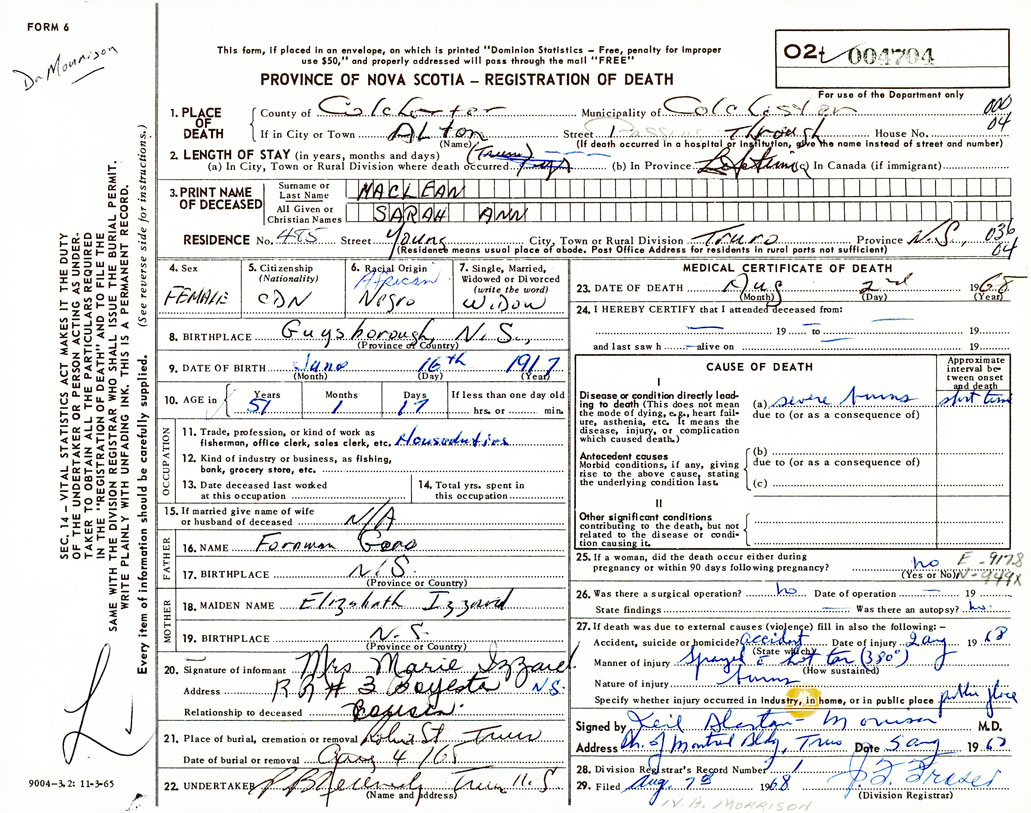 FORM 6
Dr Morrison
This form, if placed in an envelope, on which is printed "Dominion Statistics – Free, penalty for improper
use $50," and properly addressed will pass through the mail "FREE"
PROVINCE OF NOVA SCOTIA – REGISTRATION OF DEATH
02 004704
For use of the Department only
000
04
1. PLACE OF DEATH
County of Colchester Municipality of Colchester
If in City or Town Alton Street Passing Through House No.
(Name) (If death occurred in a hospital or institution, give the name instead of street and number)
2. LENGTH OF STAY (in years, months and days) (Truro)
(a) In City, Town or Rural Division where death occurred (b) In Province Lifetime (c) In Canada (if immigrant)
3. PRINT NAME OF DECEASED
Surname or Last Name MACLEAN
All Given or Christian Names SARAH ANN
RESIDENCE No. 485 Street Young City, Town or Rural Division Truro Province N.S., 036 04
(Residence means usual place of abode. Post Office Address for residents in rural parts not sufficient)
4. Sex FEMALE
5. Citizenship (Nationality) CDN
6. Racial Origin African Negro
7. Single, Married, Widowed or Divorced (write the word) WIDOW
8. BIRTHPLACE Guysborough, N.S.,
(Province or Country)
9. DATE OF BIRTH June 16th 1917
(Month) (Day) (Year)
10. AGE in Years 51 Months 1 Days 17 If less than one day old hrs. or min.
OCCUPATION
11. Trade, profession, or kind of work as fisherman, office clerk, sales clerk, etc. Houseduties
12. Kind of industry or business, as fishing, bank, grocery store, etc.
13. Date deceased last worked at this occupation
14. Total yrs. spent in this occupation
15. If married give name of wife or husband of deceased N/A
FATHER
16. NAME Forman
17. BIRTHPLACE N.S.
(Province or Country)
MOTHER
18. MAIDEN NAME Elizabeth Izzard
19. BIRTHPLACE N.S.
(Province or Country)
20. Signature of informant Mrs Marie Izzard.
Address R R # 3 N.S.
Relationship to deceased Cousin
21. Place of burial, cremation or removal Robie St Truro
Date of burial or removal Aug 4 /68
22. UNDERTAKER Truro N.S
(Name and address)
MEDICAL CERTIFICATE OF DEATH
23. DATE OF DEATH Aug 2nd 1968
(Month) (Day) (Year)
24. I HEREBY CERTIFY that I attended deceased from:
19 to 19
and last saw h alive on 19
CAUSE OF DEATH
Approximate interval between onset and death
I
Disease or condition directly leading to death (This does not mean the mode of dying, e.g., heart failure, asthenia, etc. It means the disease, injury, or complication which caused death.)
(a) severe burns short time
due to (or as a consequence of)
Antecedent causes
Morbid conditions, if any, giving rise to the above cause, stating the underlying condition last.
(b)
due to (or as a consequence of)
(c)
II
Other significant conditions
contributing to the death, but not related to the disease or condition causing it.
25. If a woman, did the death occur either during pregnancy or within 90 days following pregnancy? no
(Yes or No)
E-9178
N-949X
26. Was there a surgical operation? no Date of operation 19
State findings Was there an autopsy? no
27. If death was due to external causes (violence) fill in also the following: –
Accident, suicide or homicide? accident Date of injury 2 aug 1968
(State which)
Manner of injury sprayed c hot tar (380°)
(How sustained)
Nature of injury burns
Specify whether injury occurred in Industry, in home, or in public place public place
Signed by Neil Morrison M.D.
Address Bk. of Montreal Bldg, Truro Date 5 aug 1968
28. Division Registrar's Record Number 1
29. Filed Aug. 7th 1968 J. F. Fraser
(Division Registrar)
N. A. MORRISON
SEC. 14 – VITAL STATISTICS ACT MAKES IT THE DUTY
OF THE UNDERTAKER OR PERSON ACTING AS UNDER-
TAKER TO OBTAIN ALL THE PARTICULARS REQUIRED
IN THE "REGISTRATION OF DEATH" AND TO FILE THE
SAME WITH THE DIVISION REGISTRAR WHO SHALL ISSUE THE BURIAL PERMIT.
WRITE PLAINLY WITH UNFADING INK. THIS IS A PERMANENT RECORD.
Every item of information should be carefully supplied. (See reverse side for instructions.)
9004-3.2: 11-3-65